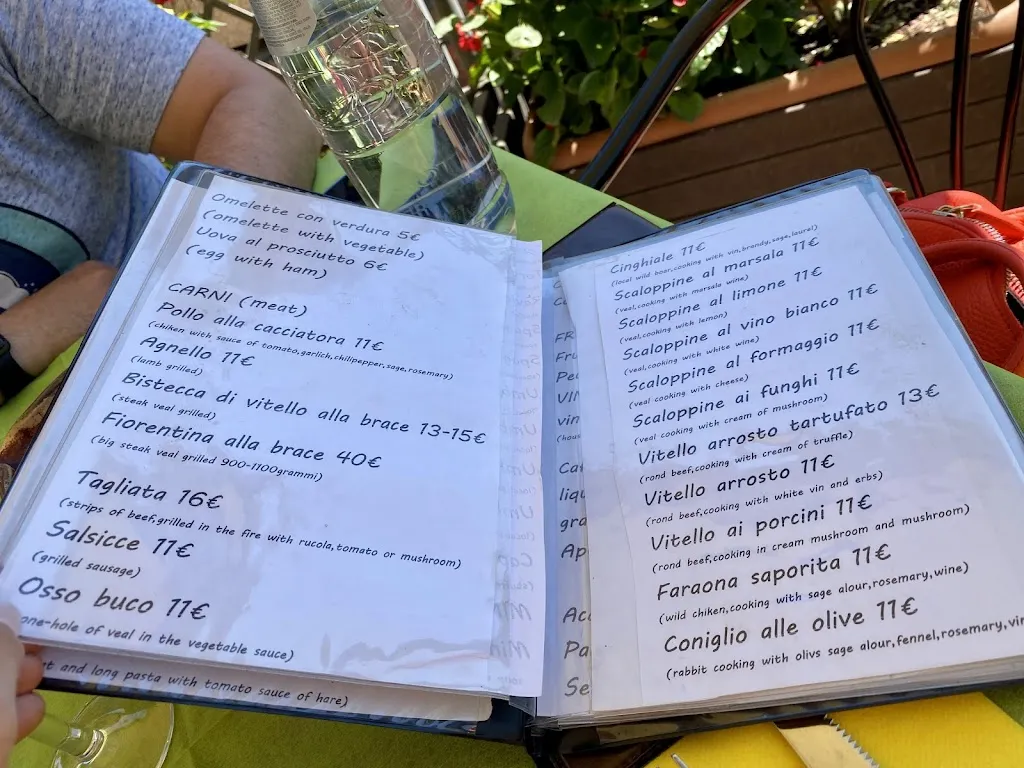 Omelette con verdura 5€
(omelette with vegetable)
Uova al prosciutto 6€
(egg with ham)
CARNI (meat)
Pollo alla cacciatora 11€
(chiken with sauce of tomato,garlich,chilipepper,sage,rosemary)
Agnello 11€
(lamb grilled)
Bistecca di vitello alla brace 13-15€
(steak veal grilled)
Fiorentina alla brace 40€
(big steak veal grilled 900-1100grammi)
Tagliata 16€
(strips of beef,grilled in the fire with rucola,tomato or mushroom)
Salsicce 11€
(grilled sausage)
Osso buco 11€
one-hole of veal in the vegetable sauce)
and long pasta with tomato sauce of hare)
Cinghiale 11€
(local wild boar,cooking with vin,brandy,sage,laurel)
Scaloppine al marsala 11€
(veal,cooking with marsala wine)
Scaloppine al limone 11€
(veal,cooking with lemon)
Scaloppine al vino bianco 11€
(veal,cooking with white wine)
Scaloppine al formaggio 11€
(veal cooking with cheese)
Scaloppine ai funghi 11€
(veal cooking with cream of mushroom)
Vitello arrosto tartufato 13€
(rond beef,cooking with cream of truffle)
Vitello arrosto 11€
(rond beef,cooking with white vin and erbs)
Vitello ai porcini 11€
(rond beef,cooking in cream mushroom and mushroom)
Faraona saporita 11€
(wild chiken,cooking with sage alour,rosemary,wine)
Coniglio alle olive 11€
(rabbit cooking with olivs sage alour,fennel,rosemary,vin